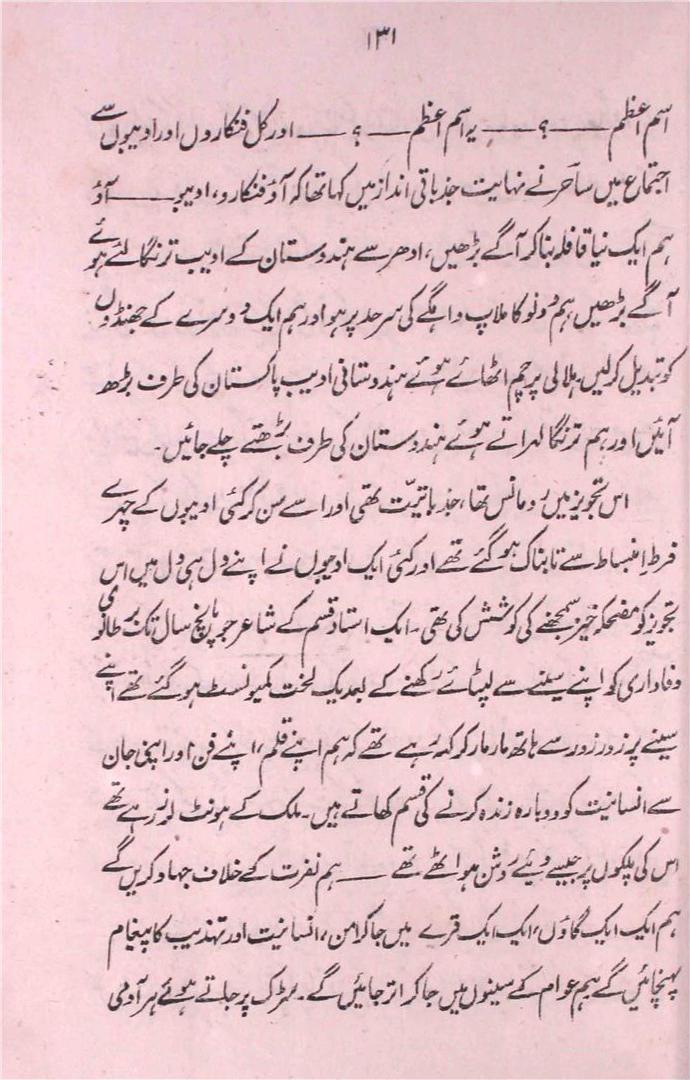 ۱۳۱
اسم اعظم ——؟—— یہ اسم اعظم ——؟—— اور کل فنکاروں اور ادیبوں کے
اجتماع میں ساحر نے نہایت جذباتی انداز میں کہا تھا کہ آؤ فنکارو، ادیبو—— آؤ
ہم ایک نیا قافلہ بنا کر آگے بڑھیں، ادھر سے ہندوستان کے ادیب ترنگا لئے ہوئے
آگے بڑھیں ہم دونو کا ملاپ واہگے کی سرحد پر ہو اور ہم ایک دوسرے کے جھنڈوں
کو تبدیل کر لیں، ہلالی پرچم اٹھائے ہوئے ہندوستانی ادیب پاکستان کی طرف بڑھ
آئیں اور ہم ترنگا لہراتے ہوئے ہندوستان کی طرف بڑھتے چلے جائیں۔
اس تجویز میں رومانس تھا، جذباتیّت تھی اور اسے سن کر کئی ادیبوں کے چہرے
فرطِ انبساط سے تابناک ہو گئے تھے اور کئی ایک ادیبوں نے اپنے دل ہی دل میں اس
تجویز کو مضحکہ خیز سمجھنے کی کوشش کی تھی۔ ایک استاد قسم کے شاعر جو پانچ سال تک برطانوی
وفاداری کو اپنے سینے سے لپٹائے رکھنے کے بعد یک لخت کمیونسٹ ہو گئے تھے اپنے
سینے پر زور زور سے ہاتھ مار مار کر کہہ رہے تھے کہ ہم اپنے قلم، اپنے فن اور اپنی جان
سے انسانیت کو دوبارہ زندہ کرنے کی قسم کھاتے ہیں۔ ملک کے ہونٹ لرز رہے تھے
اس کی پلکوں پر جیسے دیئے روشن ہو اٹھے تھے —— ہم نفرت کے خلاف جہاد کریں گے
ہم ایک ایک گاؤں، ایک ایک قریے میں جا کر امن، انسانیت اور تہذیب کا پیغام
پہنچائیں گے ہم عوام کے سینوں میں جا کر اتر جائیں گے۔ سڑک پر جاتے ہوئے ہر آدمی